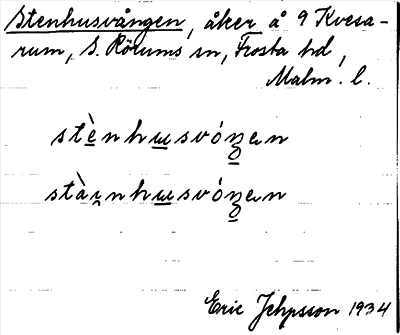 Stenhusvången, åker å 9 Kvesa-
rum, S. Rörums sn, Frosta hd,
Malm. l.
stènhusvóŋen
stàınhusvóŋen
Eric Jepsson 1934